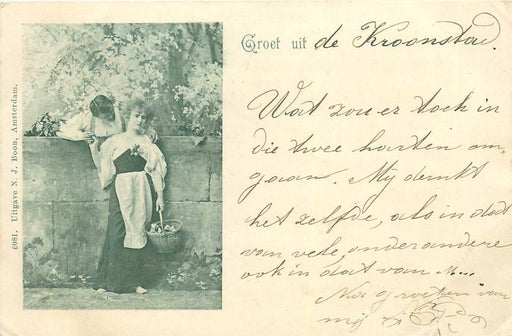 Groet uit de Kroonstad.
Wat zou er toch in
die twee harten om-
gaan. Mij denkt
het zelfde, als in dat
van vele, onder andere
ook in dat van M....
Nou groeten van
mij
6081. Uitgave N. J. Boon, Amsterdam.